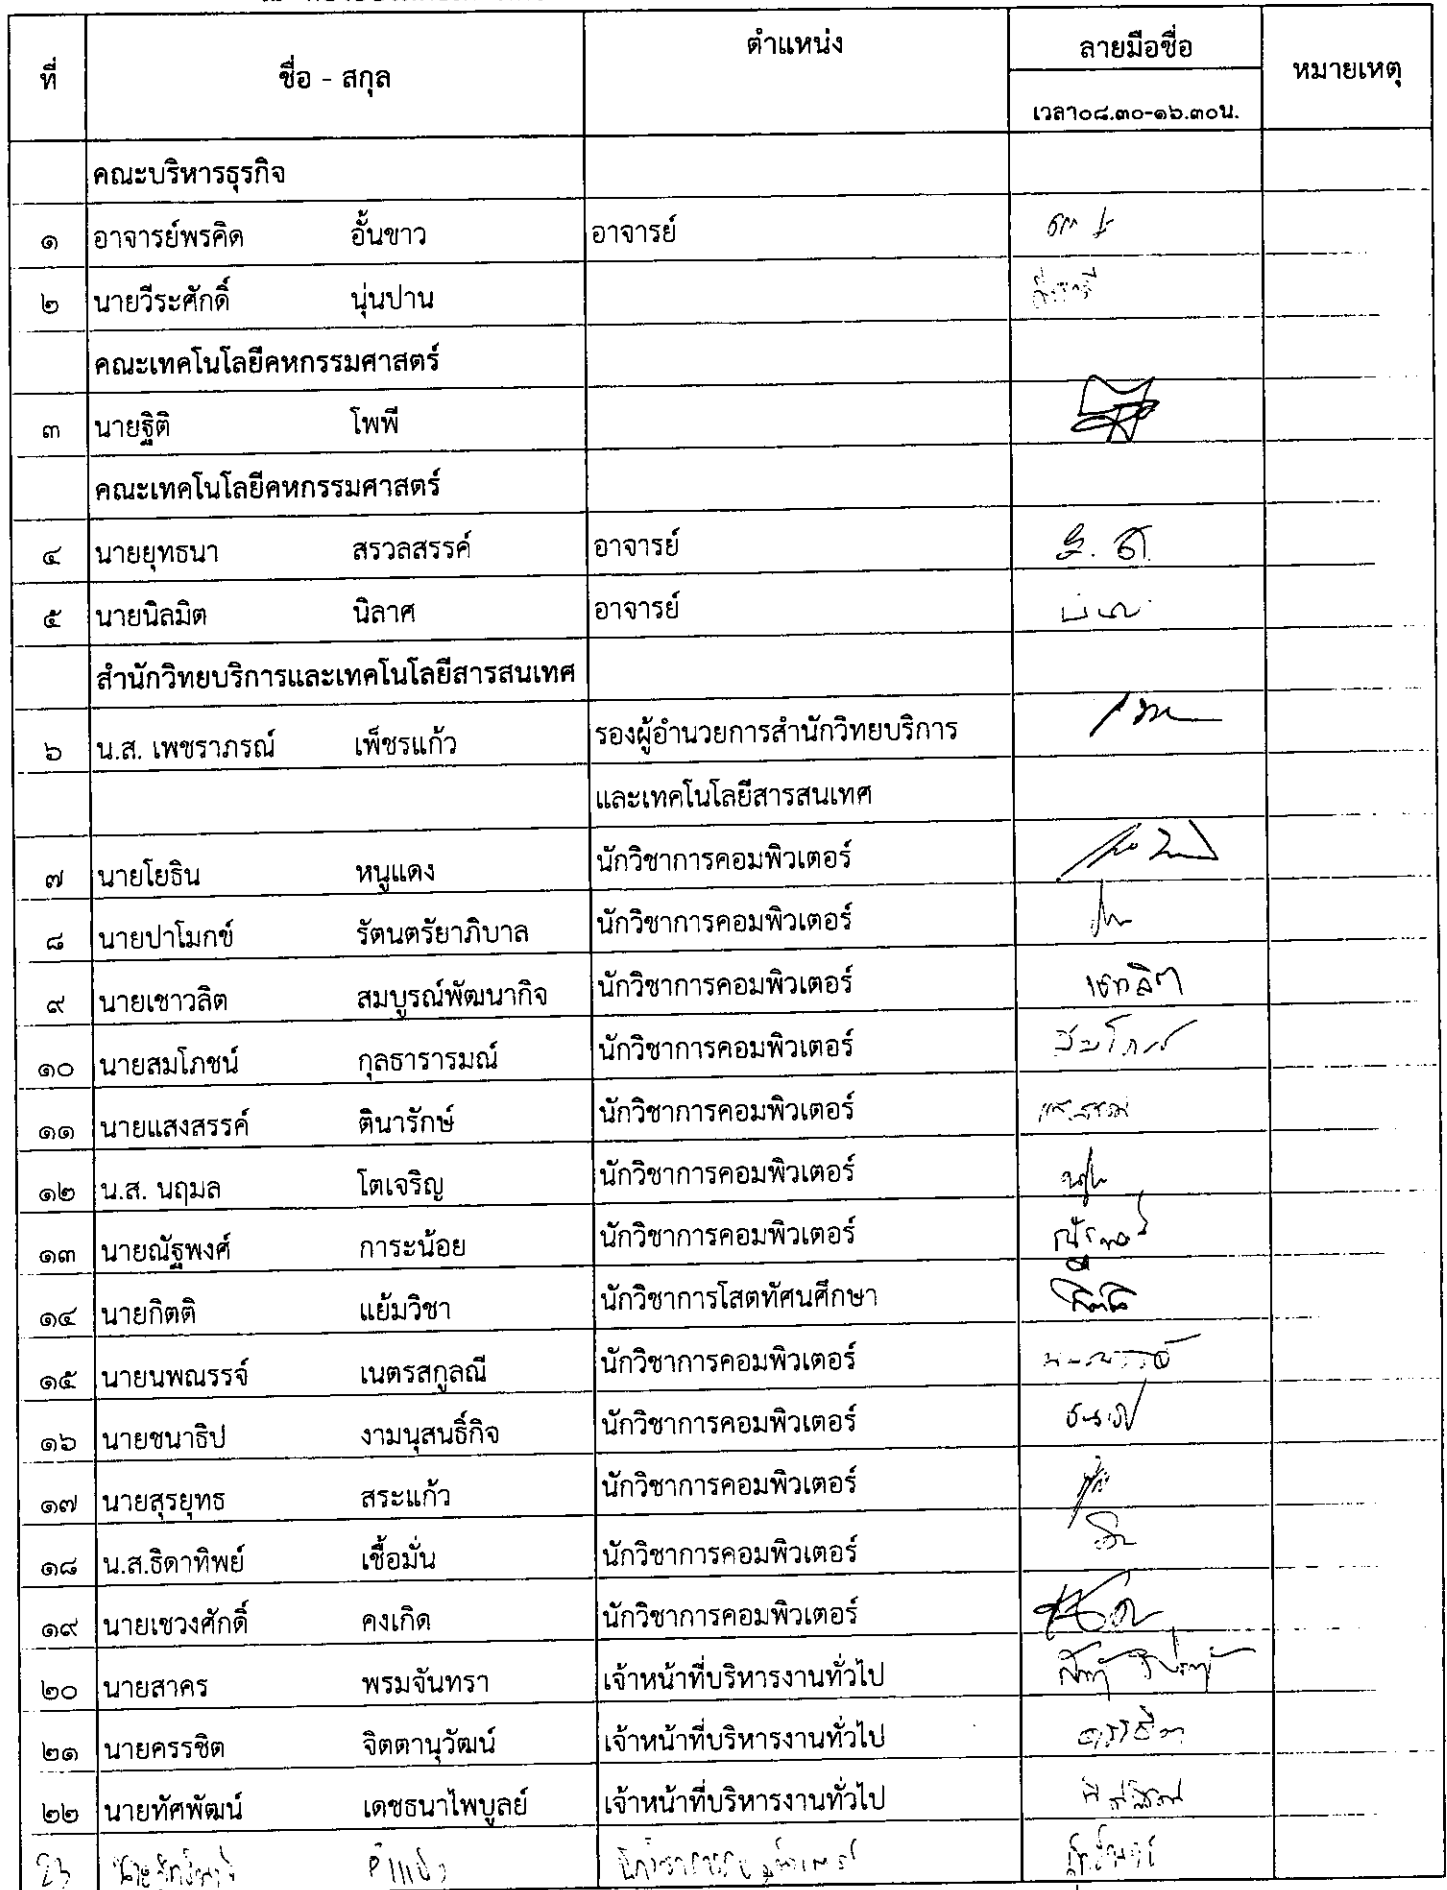 ที่ ชื่อ - สกุล ตำแหน่ง ลายมือชื่อ หมายเหตุ
เวลา๐๘.๓๐-๑๖.๓๐น.
คณะบริหารธุรกิจ
๑ อาจารย์พรคิด อั้นขาว อาจารย์
๒ นายวีระศักดิ์ นุ่นปาน
คณะเทคโนโลยีคหกรรมศาสตร์
๓ นายฐิติ โพพี
คณะเทคโนโลยีคหกรรมศาสตร์
๔ นายยุทธนา สรวลสรรค์ อาจารย์
๕ นายนิลมิต นิลาศ อาจารย์
สำนักวิทยบริการและเทคโนโลยีสารสนเทศ
๖ น.ส. เพชราภรณ์ เพ็ชรแก้ว รองผู้อำนวยการสำนักวิทยบริการ
และเทคโนโลยีสารสนเทศ
๗ นายโยธิน หนูแดง นักวิชาการคอมพิวเตอร์
๘ นายปาโมกข์ รัตนตรัยาภิบาล นักวิชาการคอมพิวเตอร์
๙ นายเชาวลิต สมบูรณ์พัฒนากิจ นักวิชาการคอมพิวเตอร์
๑๐ นายสมโภชน์ กุลธารารมณ์ นักวิชาการคอมพิวเตอร์
๑๑ นายแสงสรรค์ ตินารักษ์ นักวิชาการคอมพิวเตอร์
๑๒ น.ส. นฤมล โตเจริญ นักวิชาการคอมพิวเตอร์
๑๓ นายณัฐพงศ์ การะน้อย นักวิชาการคอมพิวเตอร์
๑๔ นายกิตติ แย้มวิชา นักวิชาการโสตทัศนศึกษา
๑๕ นายนพณรรจ์ เนตรสกูลณี นักวิชาการคอมพิวเตอร์
๑๖ นายชนาธิป งามนุสนธิ์กิจ นักวิชาการคอมพิวเตอร์
๑๗ นายสุรยุทธ สระแก้ว นักวิชาการคอมพิวเตอร์
๑๘ น.ส.ธิดาทิพย์ เชื้อมั่น นักวิชาการคอมพิวเตอร์
๑๙ นายเชวงศักดิ์ คงเกิด นักวิชาการคอมพิวเตอร์
๒๐ นายสาคร พรมจันทรา เจ้าหน้าที่บริหารงานทั่วไป
๒๑ นายครรชิต จิตตานุวัฒน์ เจ้าหน้าที่บริหารงานทั่วไป
๒๒ นายทัศพัฒน์ เดชธนาไพบูลย์ เจ้าหน้าที่บริหารงานทั่วไป
23